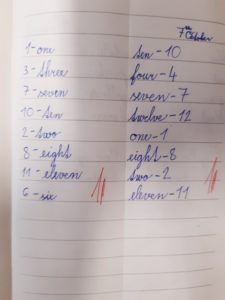 7th October
1-one
3-three
7-seven
10-ten
2-two
8-eight
11-eleven
6-six
ten-10
four-4
seven-7
twelve-12
one-1
eight-8
two-2
eleven-11